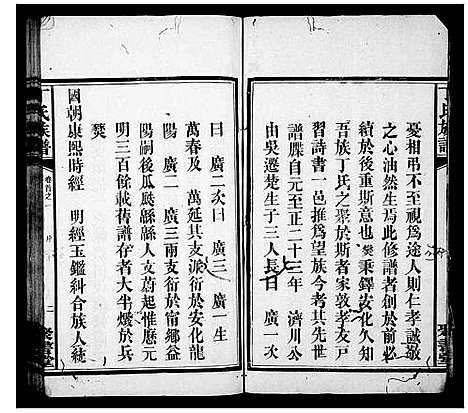 憂相弔不至視爲途人則仁孝誠敬
之心油然生焉此修譜者創於前必
續於後重斯意也燮秉鐸安化久知
吾族丁氏之聚於斯者家敦孝友戸
習詩書一邑推爲望族今考其
譜牒自元至正二十三年　濟川公
由吳遷楚生子三人長曰　廣一次
曰　廣二次曰　廣三　廣一生
萬春及　萬延其支派衍於安化龍
陽　廣二　廣三兩支衍於甯鄉益
陽嗣後瓜瓞緜緜人文蔚起惟歷元
明三百餘載舊譜存者大半燬於兵
燹
國朝康熙時經　明經玉鑑糾合族人統
氏族譜
卷首之一
二
聚書堂